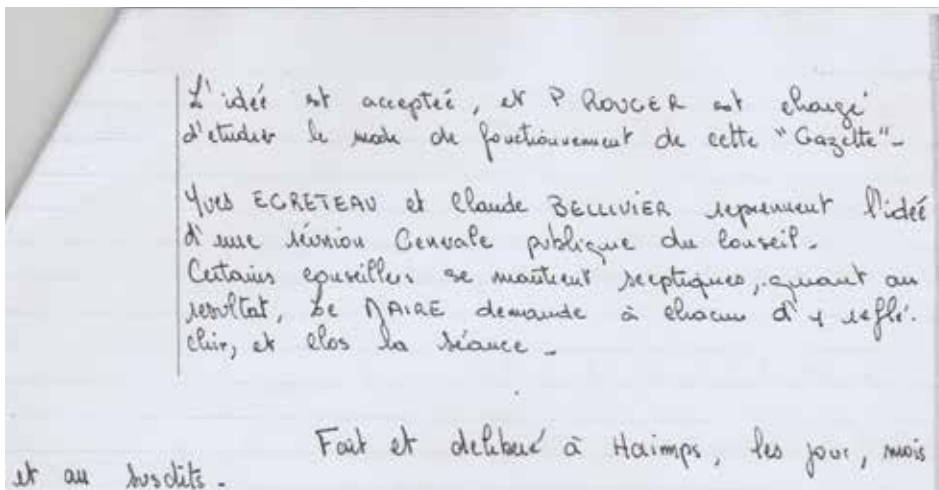 L'idée est acceptée, et P ROUGER est chargé
d'etudier le mode de fonctionnement de cette "Gazette"-
Yves EGRETEAU et Claude BELLIVIER reprennent l'idée
d'une réunion Generale publique du Conseil-
Certains conseillers se montrent sceptiques, quant au
resultat, Le MAIRE demande à chacun d'y reflé-
chir, et clos la séance-
Fait et deliberé à Haimps, les jour, mois
et an susdits-